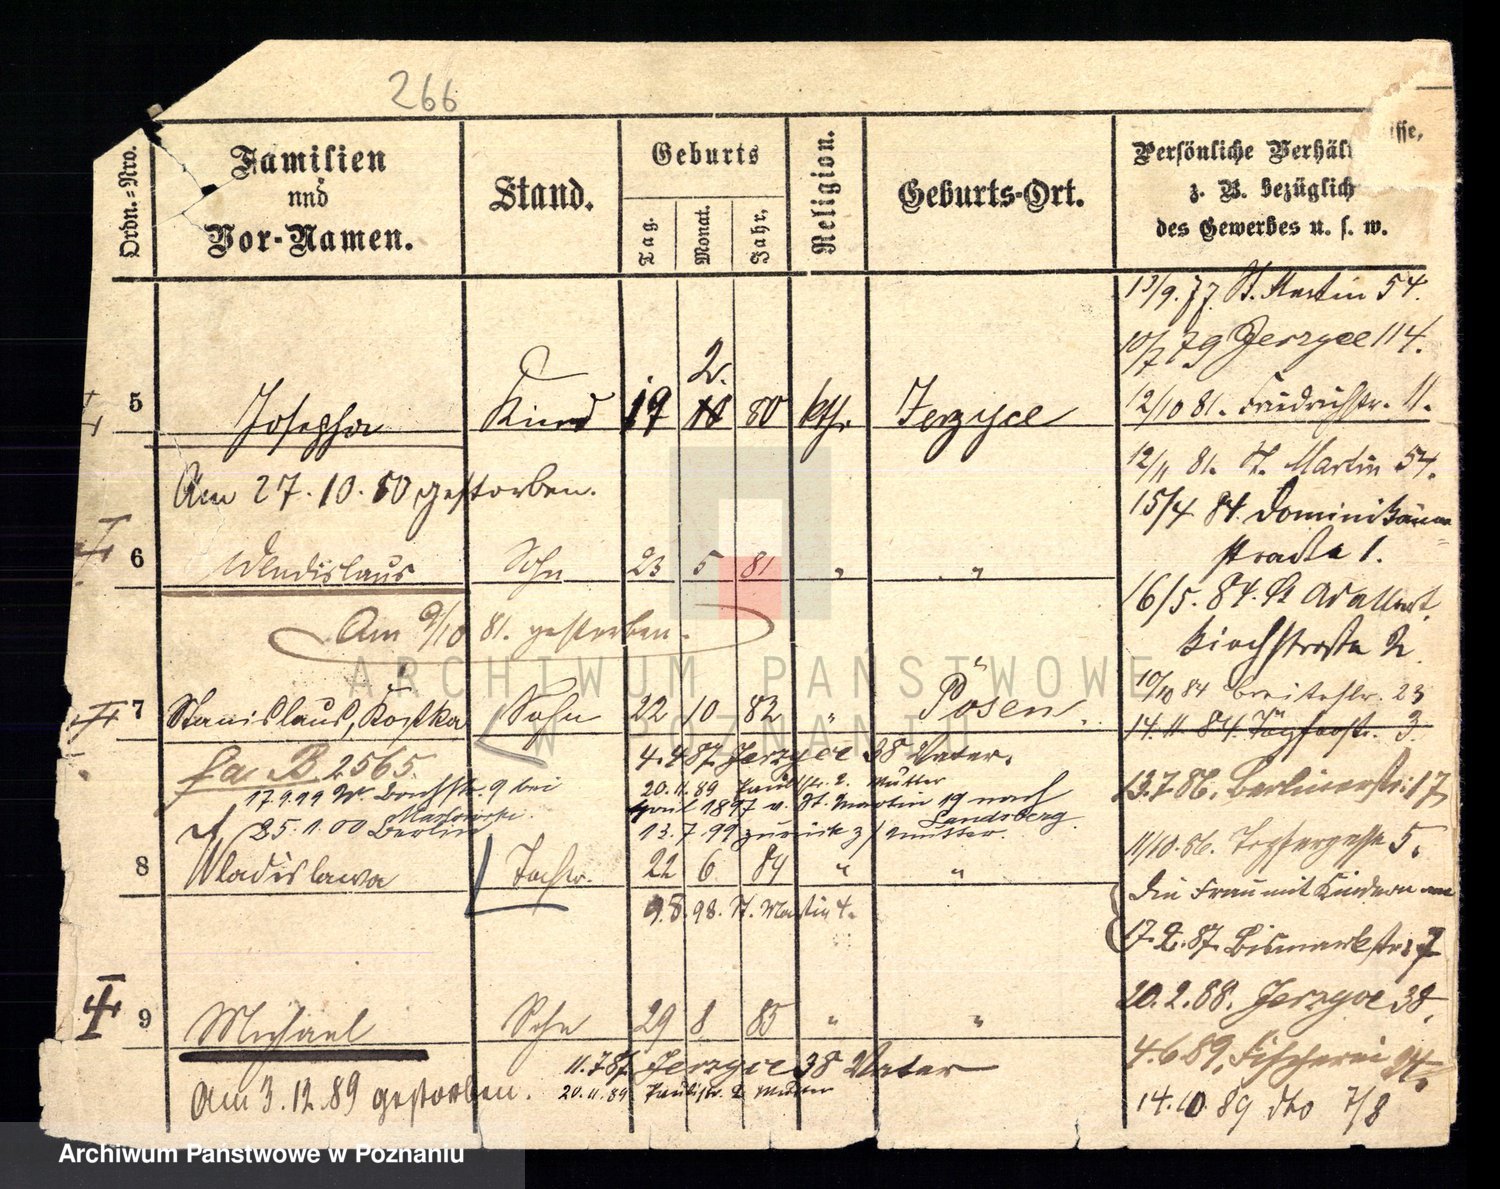 266
Ordn.-Nro.
Familien
und
Vor-Namen.
Stand.
Geburts
Tag.
Monat.
Jahr,
Religion.
Geburts-Ort.
Persönliche Verhäl sse,
z. B. bezüglich
des Gewerbes u. s. w.
5 Josepha Kind 19 2. 80 kth. Jerzyce
Am 27.10.80 gestorben.
6 Wladislaus Sohn 23 5 81 " "
Am 9/10 81. gestorben.
7 Stanislaus, Kostka Sohn 22 10 82 " Posen.
fa B 2565.
4.4.87. Jerzyce 38 Vater.
17.9.99 9 bei
20.11.89 Paulistr. 2. Mutter
April 1897 v. St. Martin 19 nach
Landsberg.
25.1.00 Berlin
13.7.99 zurück z/ Mutter.
8 Wladislawa Tochtr. 22 6 84 " "
9.8.98. St. Martin 4.
9 Michael Sohn 29 8 85 " "
11.7.87. Jerzyce 38 Vater
20.11.89 Paulistr. 2 Mutter
Am 3.12.89 gestorben.
13/9. 77 St. Martin 54.
10/7 79 Jerzyce 114.
12/10 81. Friedrichstr. 11.
12/11 81. St. Martin 54.
15/4 84. Dominikaner=
straße 1.
16/5. 84. St Adalbert
Kirchstraße 2.
10/10 84 Breitestr. 23
14.11.84. 3.
13.7.86. Berlinerstr. 17
11/10.86. Töpfergasse 5.
Die Frau mit Kindern am
17.2.87. Bismarkstr. 7
20.2.88. Jerzyce 38.
4.6.89. Fischerei
14.10.89 dto 7/8
ARCHIWUM PAŃSTWOWE
W POZNANIU
Archiwum Państwowe w Poznaniu